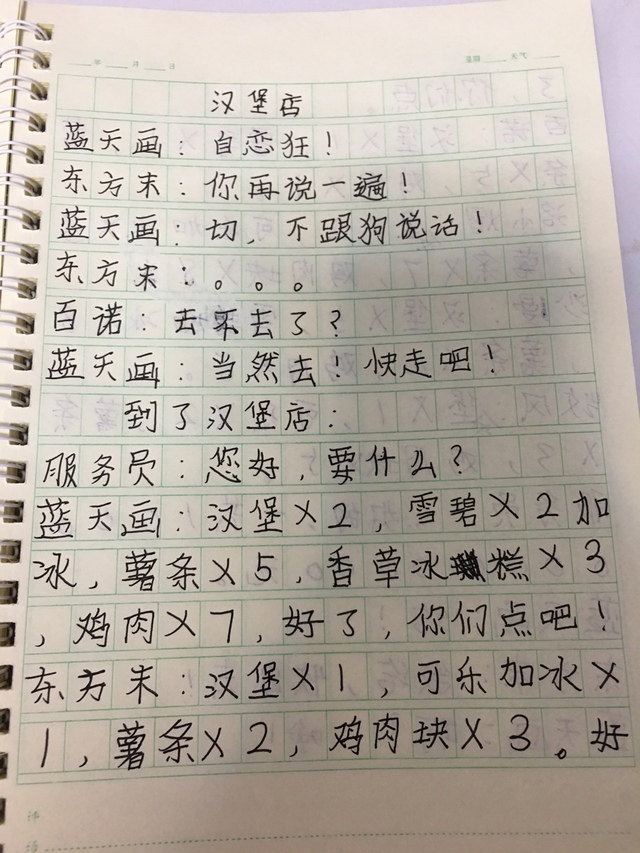 年 月 日 星期 天气
汉堡店
蓝天画：自恋狂！
东方末：你再说一遍！
蓝天画：切，不跟狗说话！
东方末：。。。
百诺：去不去了？
蓝天画：当然去！快走吧！
到了汉堡店：
服务员：您好，要什么？
蓝天画：汉堡X2，雪碧X2加
冰，薯条X5，香草冰糕X3
，鸡肉X7，好了，你们点吧！
东方末：汉堡X1，可乐加冰X
1，薯条X2，鸡肉块X3。好
评
语